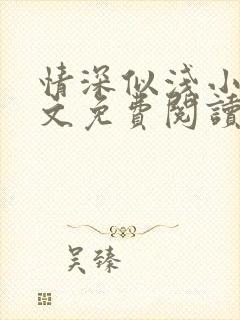 情深似淺小
文免費閱讀
吴臻